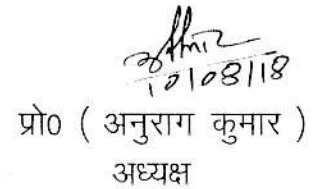 10/08/18
प्रो0 ( अनुराग कुमार )
अध्यक्ष